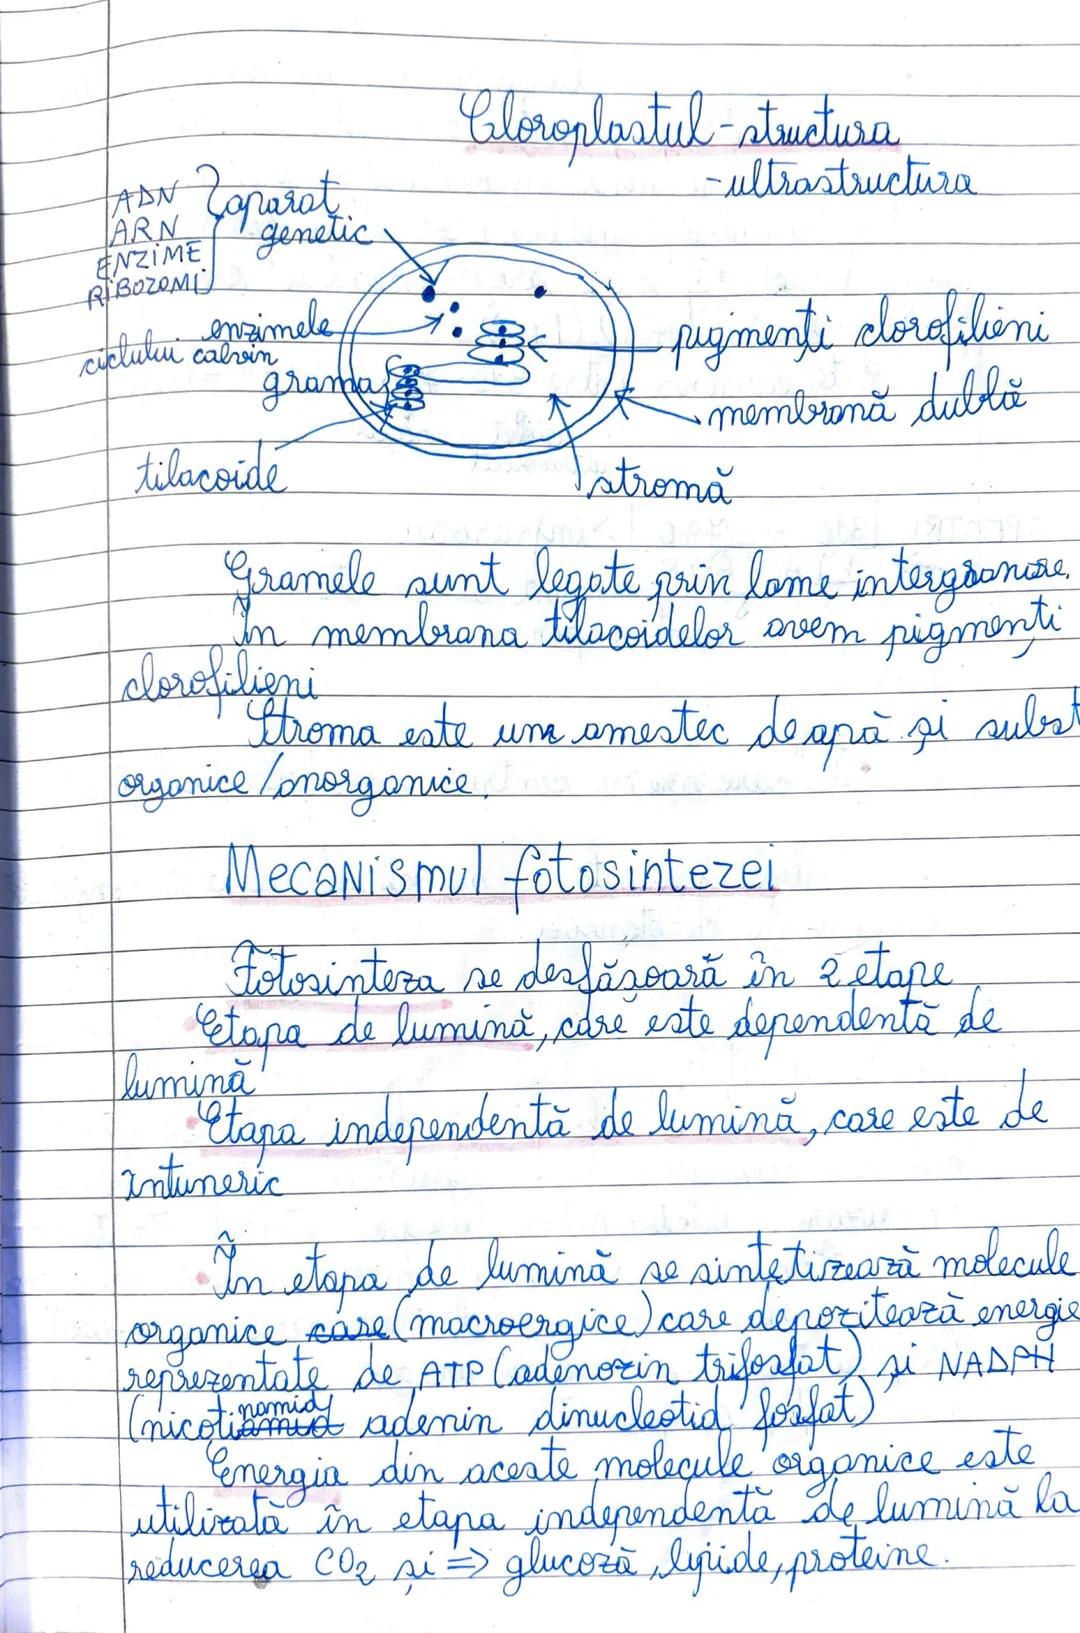 Cloroplastul - structura
- ultrastructura
ADN
ARN
ENZIME
RIBOZOMI
aparat
genetic
enzimele
ciclului calvin
grama
tilacoide
pigmenți clorofilieni
membrană dublă
stromă
Gramele sunt legate prin lame intergranare.
În membrana tilacoidelor avem pigmenți
clorofilieni
Stroma este un amestec de apă și subst
organice/anorganice.
Mecanismul fotosintezei
Fotosinteza se desfășoară în 2 etape
Etapa de lumină, care este dependentă de
lumină
Etapa independentă de lumină, care este de
întuneric
În etapa de lumină se sintetizează molecule
organice care (macroergice) care depozitează energie
reprezentate de ATP (adenozin trifosfat) și NADPH
(nicotinamid adenin dinucleotid fosfat)
Energia din aceste molecule organice este
utilizată în etapa independentă de lumină la
reducerea CO2 și => glucoză, lipide, proteine.